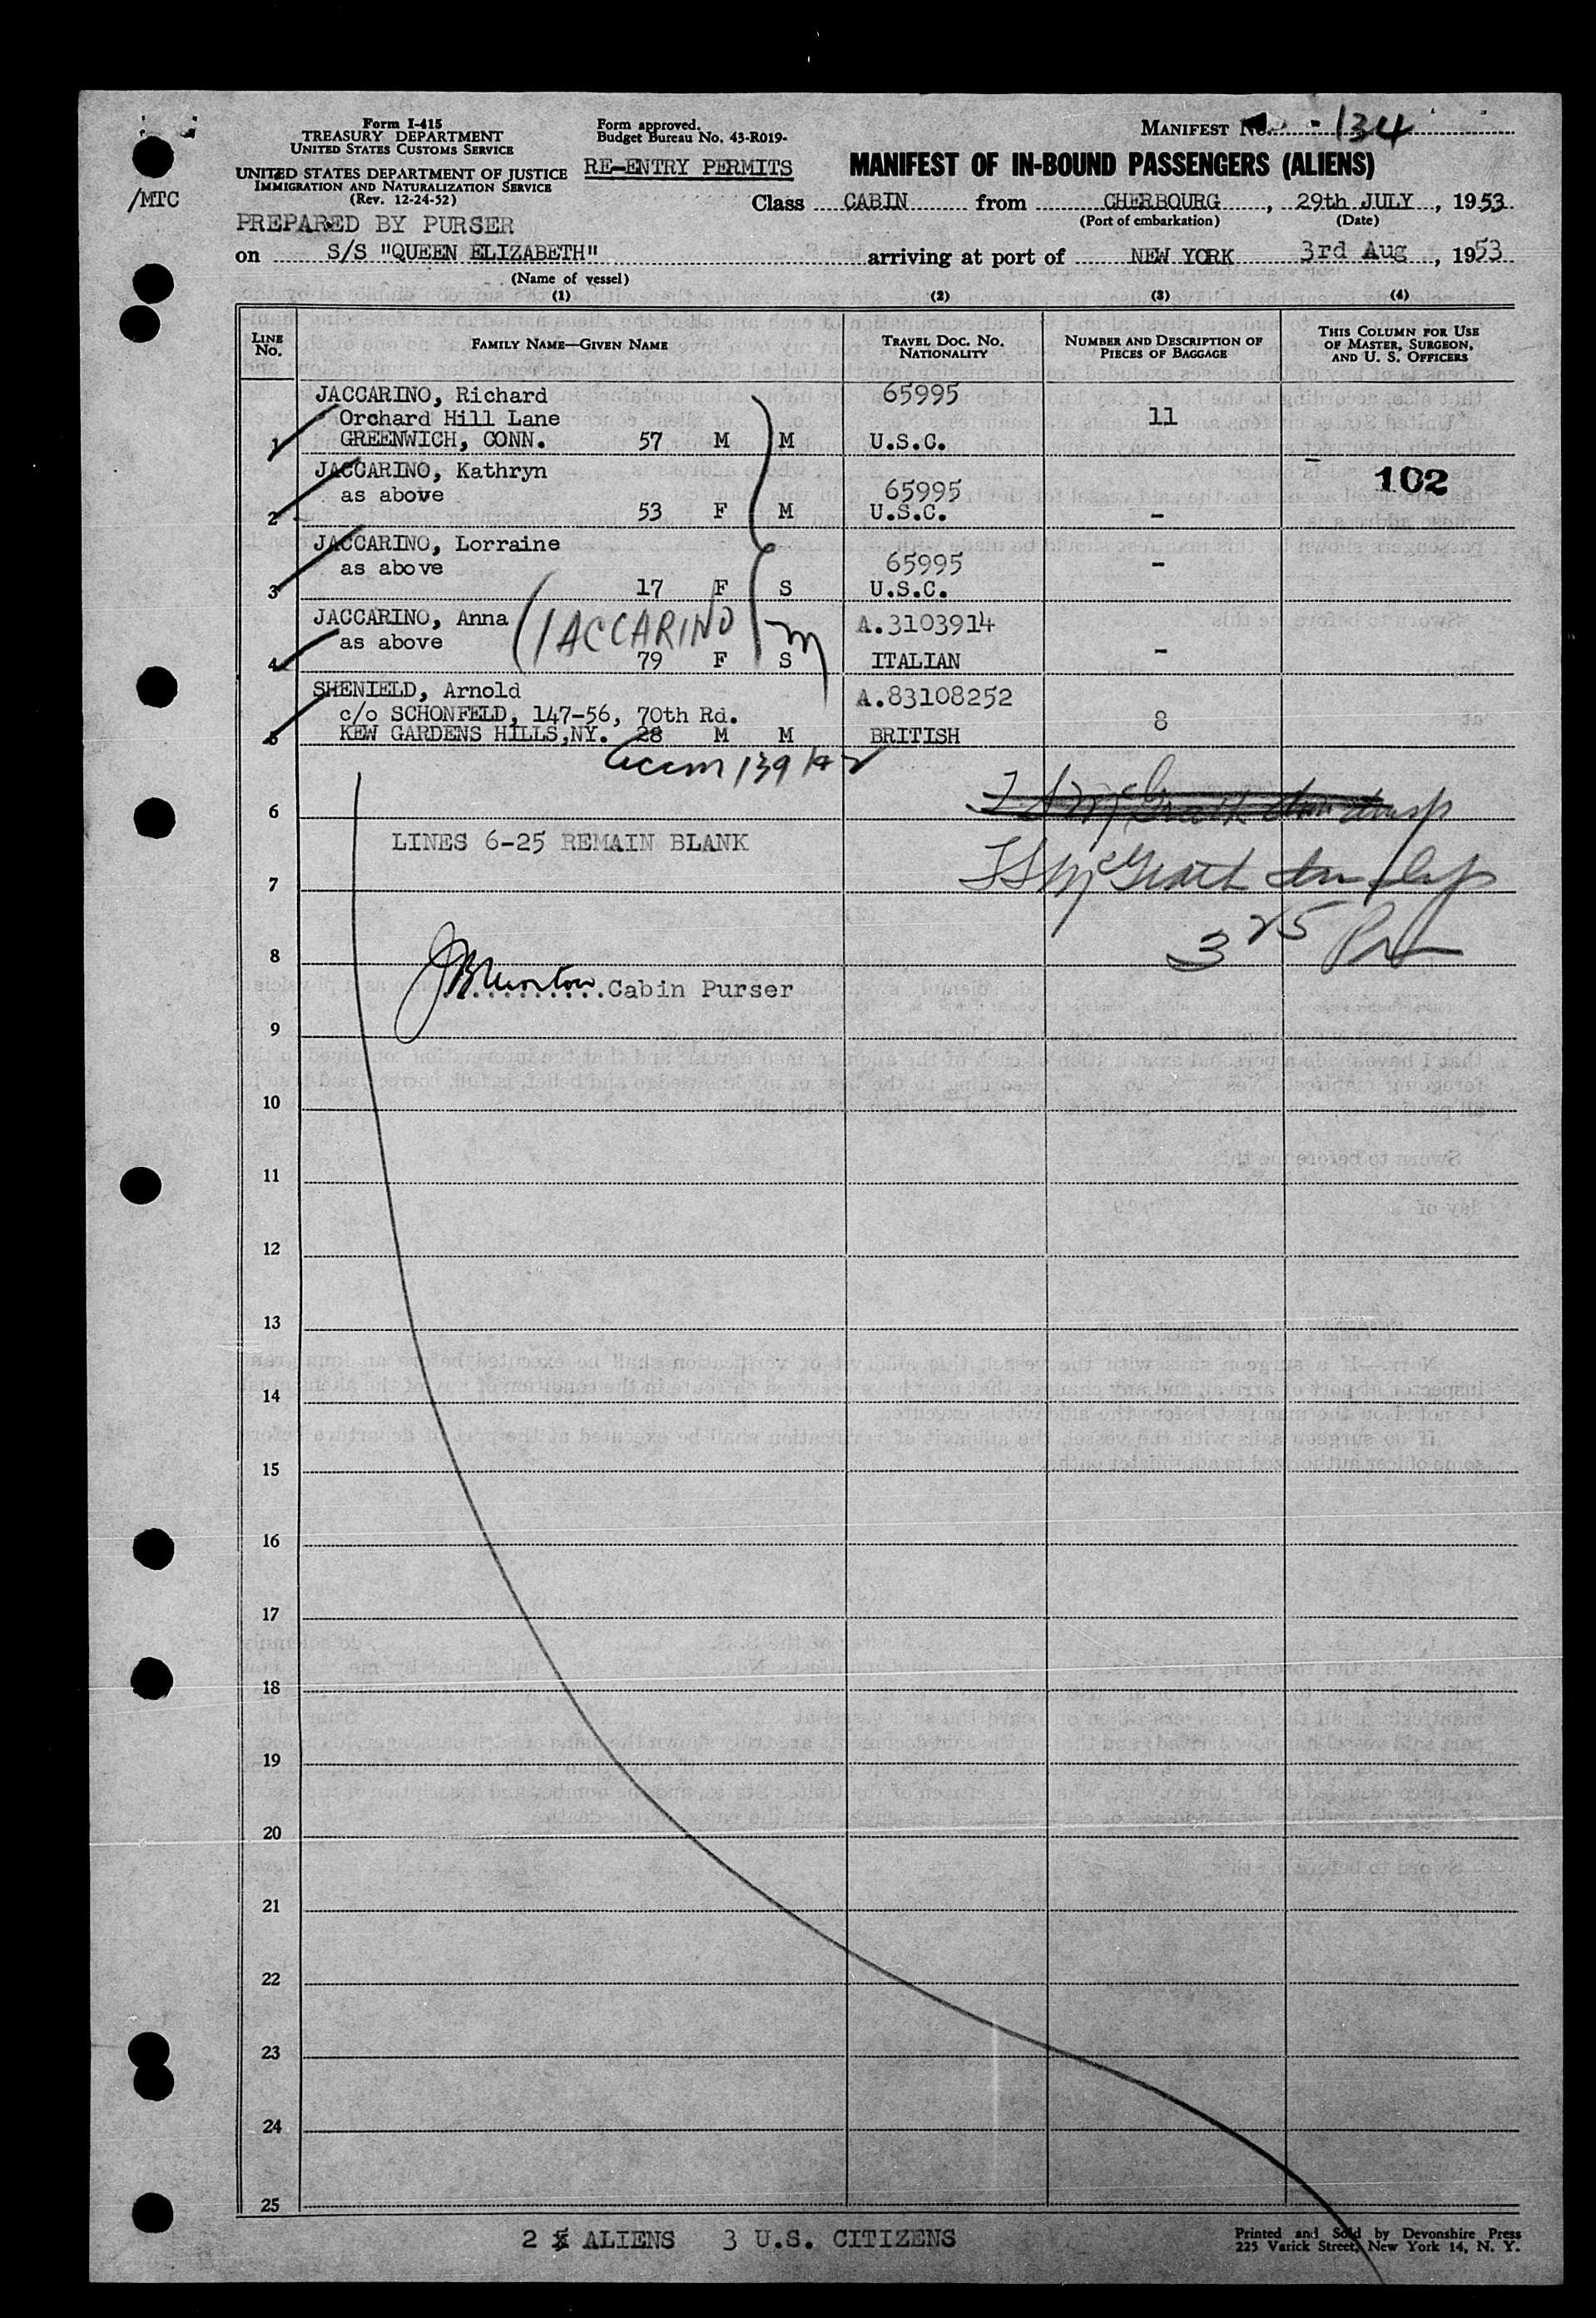 Form I-415
TREASURY DEPARTMENT
UNITED STATES CUSTOMS SERVICE
UNITED STATES DEPARTMENT OF JUSTICE
IMMIGRATION AND NATURALIZATION SERVICE
(Rev. 12-24-52)
/MTC
PREPARED BY PURSER
Form approved.
Budget Bureau No. 43-R019-
RE-ENTRY PERMITS
MANIFEST No. -134
MANIFEST OF IN-BOUND PASSENGERS (ALIENS)
Class CABIN from CHERBOURG, 29th JULY, 1953
(Port of embarkation) (Date)
on S/S "QUEEN ELIZABETH" arriving at port of NEW YORK 3rd Aug, 1953
(Name of vessel)
(1) (2) (3) (4)
LINE No. FAMILY NAME—GIVEN NAME TRAVEL DOC. No. NATIONALITY NUMBER AND DESCRIPTION OF PIECES OF BAGGAGE THIS COLUMN FOR USE OF MASTER, SURGEON, AND U. S. OFFICERS
JACCARINO, Richard 65995
Orchard Hill Lane 11
1 GREENWICH, CONN. 57 M M U.S.C.
JACCARINO, Kathryn 102
as above 65995
2 53 F M U.S.C. -
JACCARINO, Lorraine
as above 65995 -
3 17 F S U.S.C.
JACCARINO, Anna (IACCARINO A.3103914
as above m
4 79 F S ITALIAN -
SHENIELD, Arnold A.83108252
c/o SCHONFELD, 147-56, 70th Rd. 8
5 KEW GARDENS HILLS,NY. 28 M M BRITISH
6
LINES 6-25 REMAIN BLANK
7
8
Cabin Purser
9
10
11
12
13
14
15
16
17
18
19
20
21
22
23
24
25
2 5 ALIENS 3 U.S. CITIZENS
Printed and Sold by Devonshire Press
225 Varick Street, New York 14, N. Y.